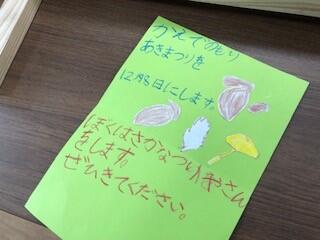 かえでのもり
あきまつりを
12がつ8日にします
ぼくはさかなつりやさん
をします。
ぜひきてください。